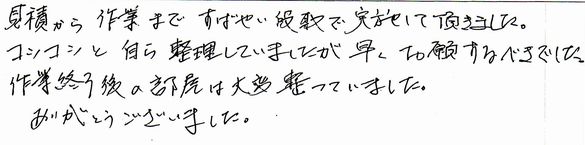 見積から作業まですばやい段取で実施して頂きました。
コンコンと自ら整理していましたが早くお願するべきでした。
作業終了後の部屋は大変整っていました。
ありがとうございました。